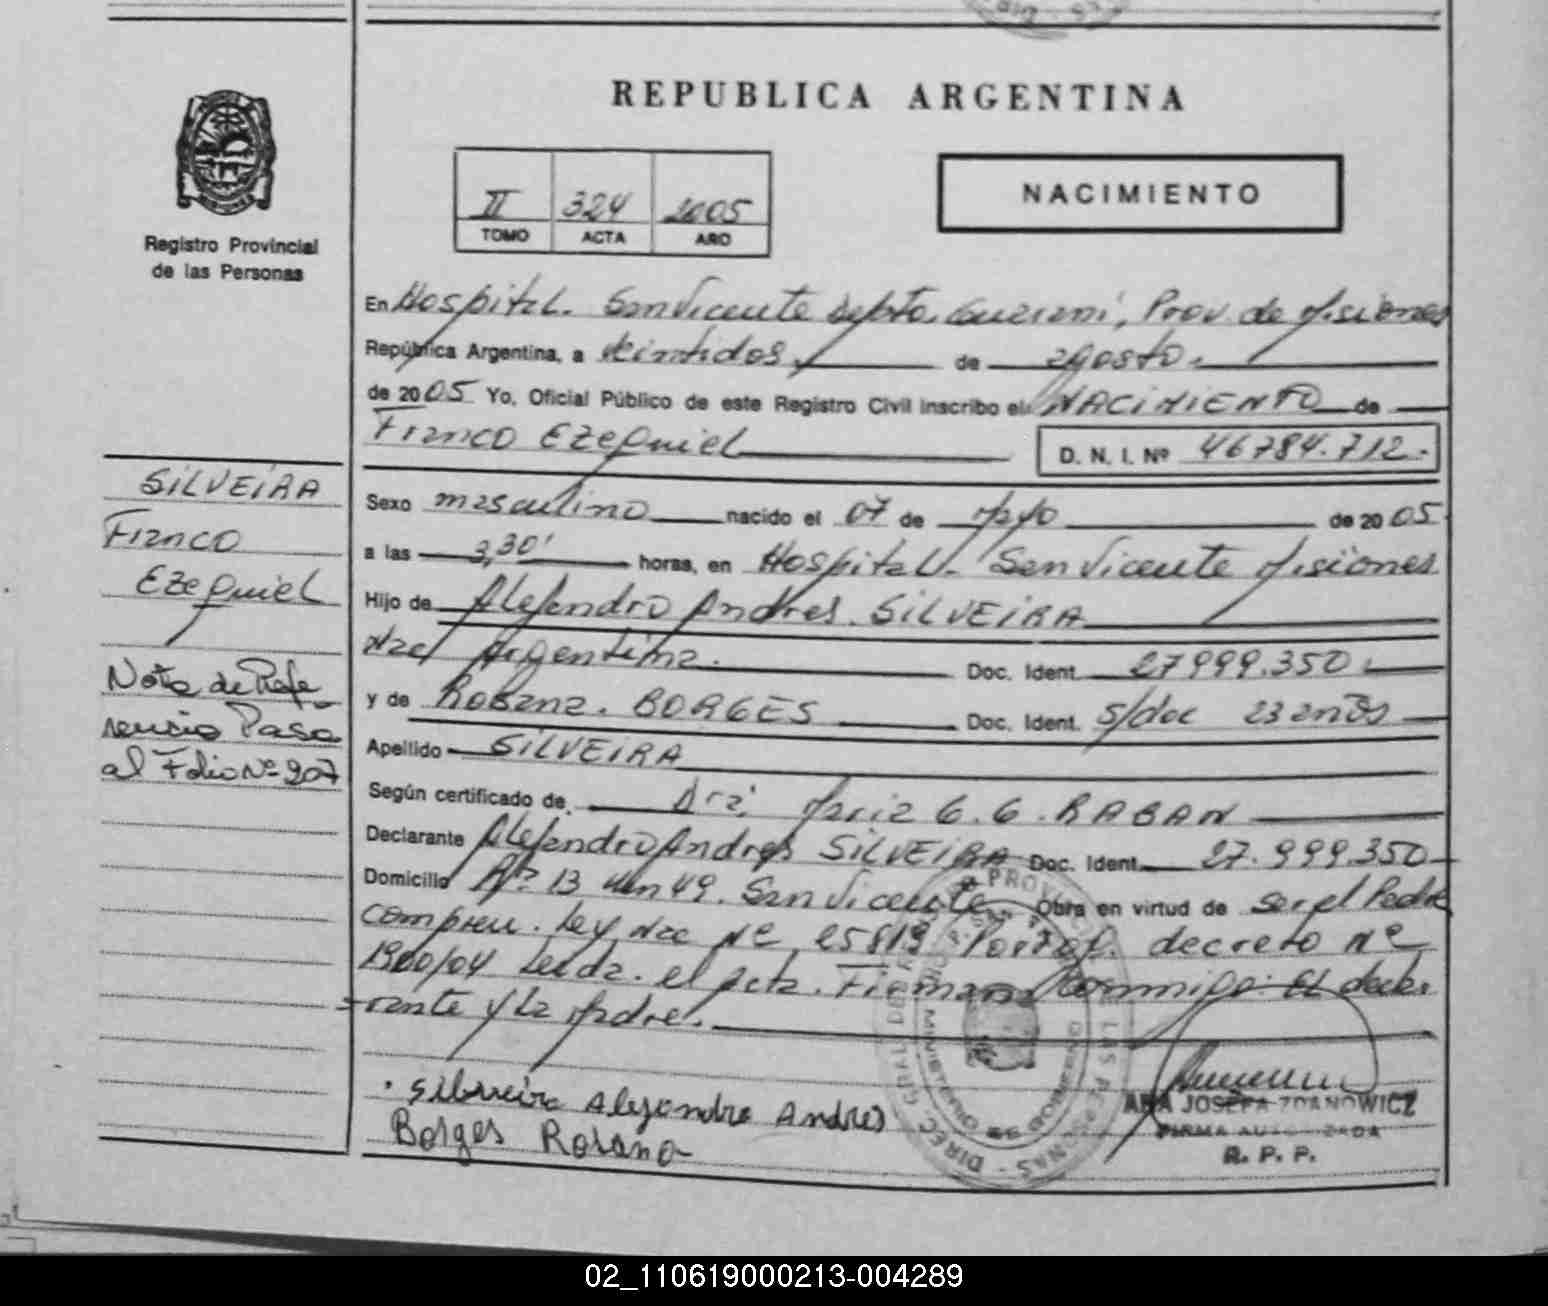 REPUBLICA ARGENTINA
II 324 2005
TOMO ACTA AÑO
NACIMIENTO
Registro Provincial
de las Personas
En Hospital. San Vicente depto. Guarani, Prov. de Misiones
República Argentina, a veintidos de agosto.
de 2005 Yo, Oficial Público de este Registro Civil inscribo el NACIMIENTO de
Franco Ezequiel D. N. I. Nº 46784.712.
SILVEIRA
Franco
Ezequiel
Nota de Refe
rencia Pasa
al Folio Nº 207
Sexo masculino nacido el 07 de Mayo de 2005
a las 3,30' horas, en Hospital. San Vicente Misiones
Hijo de Alejandro Andres. SILVEIRA
Nac Argentina. Doc. Ident. 27999.350.
y de Rosana. BORGES Doc. Ident. s/doc 23 años
Apellido SILVEIRA
Según certificado de Dra. Maria G. G. RABAN
Declarante Alejandro Andres SILVEIRA Doc. Ident. 27.999.350
Domicilio Rº 13 Km 49. San Vicente Obra en virtud de ser el Padre
compren. Ley Nac Nº 25819 decreto Nº
1300/04 Leida. el Acta. Firman Conmigo. El decla
rante y la Madre.
Silveira Alejandro Andres
Borges Rosana
ANA JOSEFA ZDANOWICZ
FIRMA AUTORIZADA
R. P. P.
02_110619000213-004289